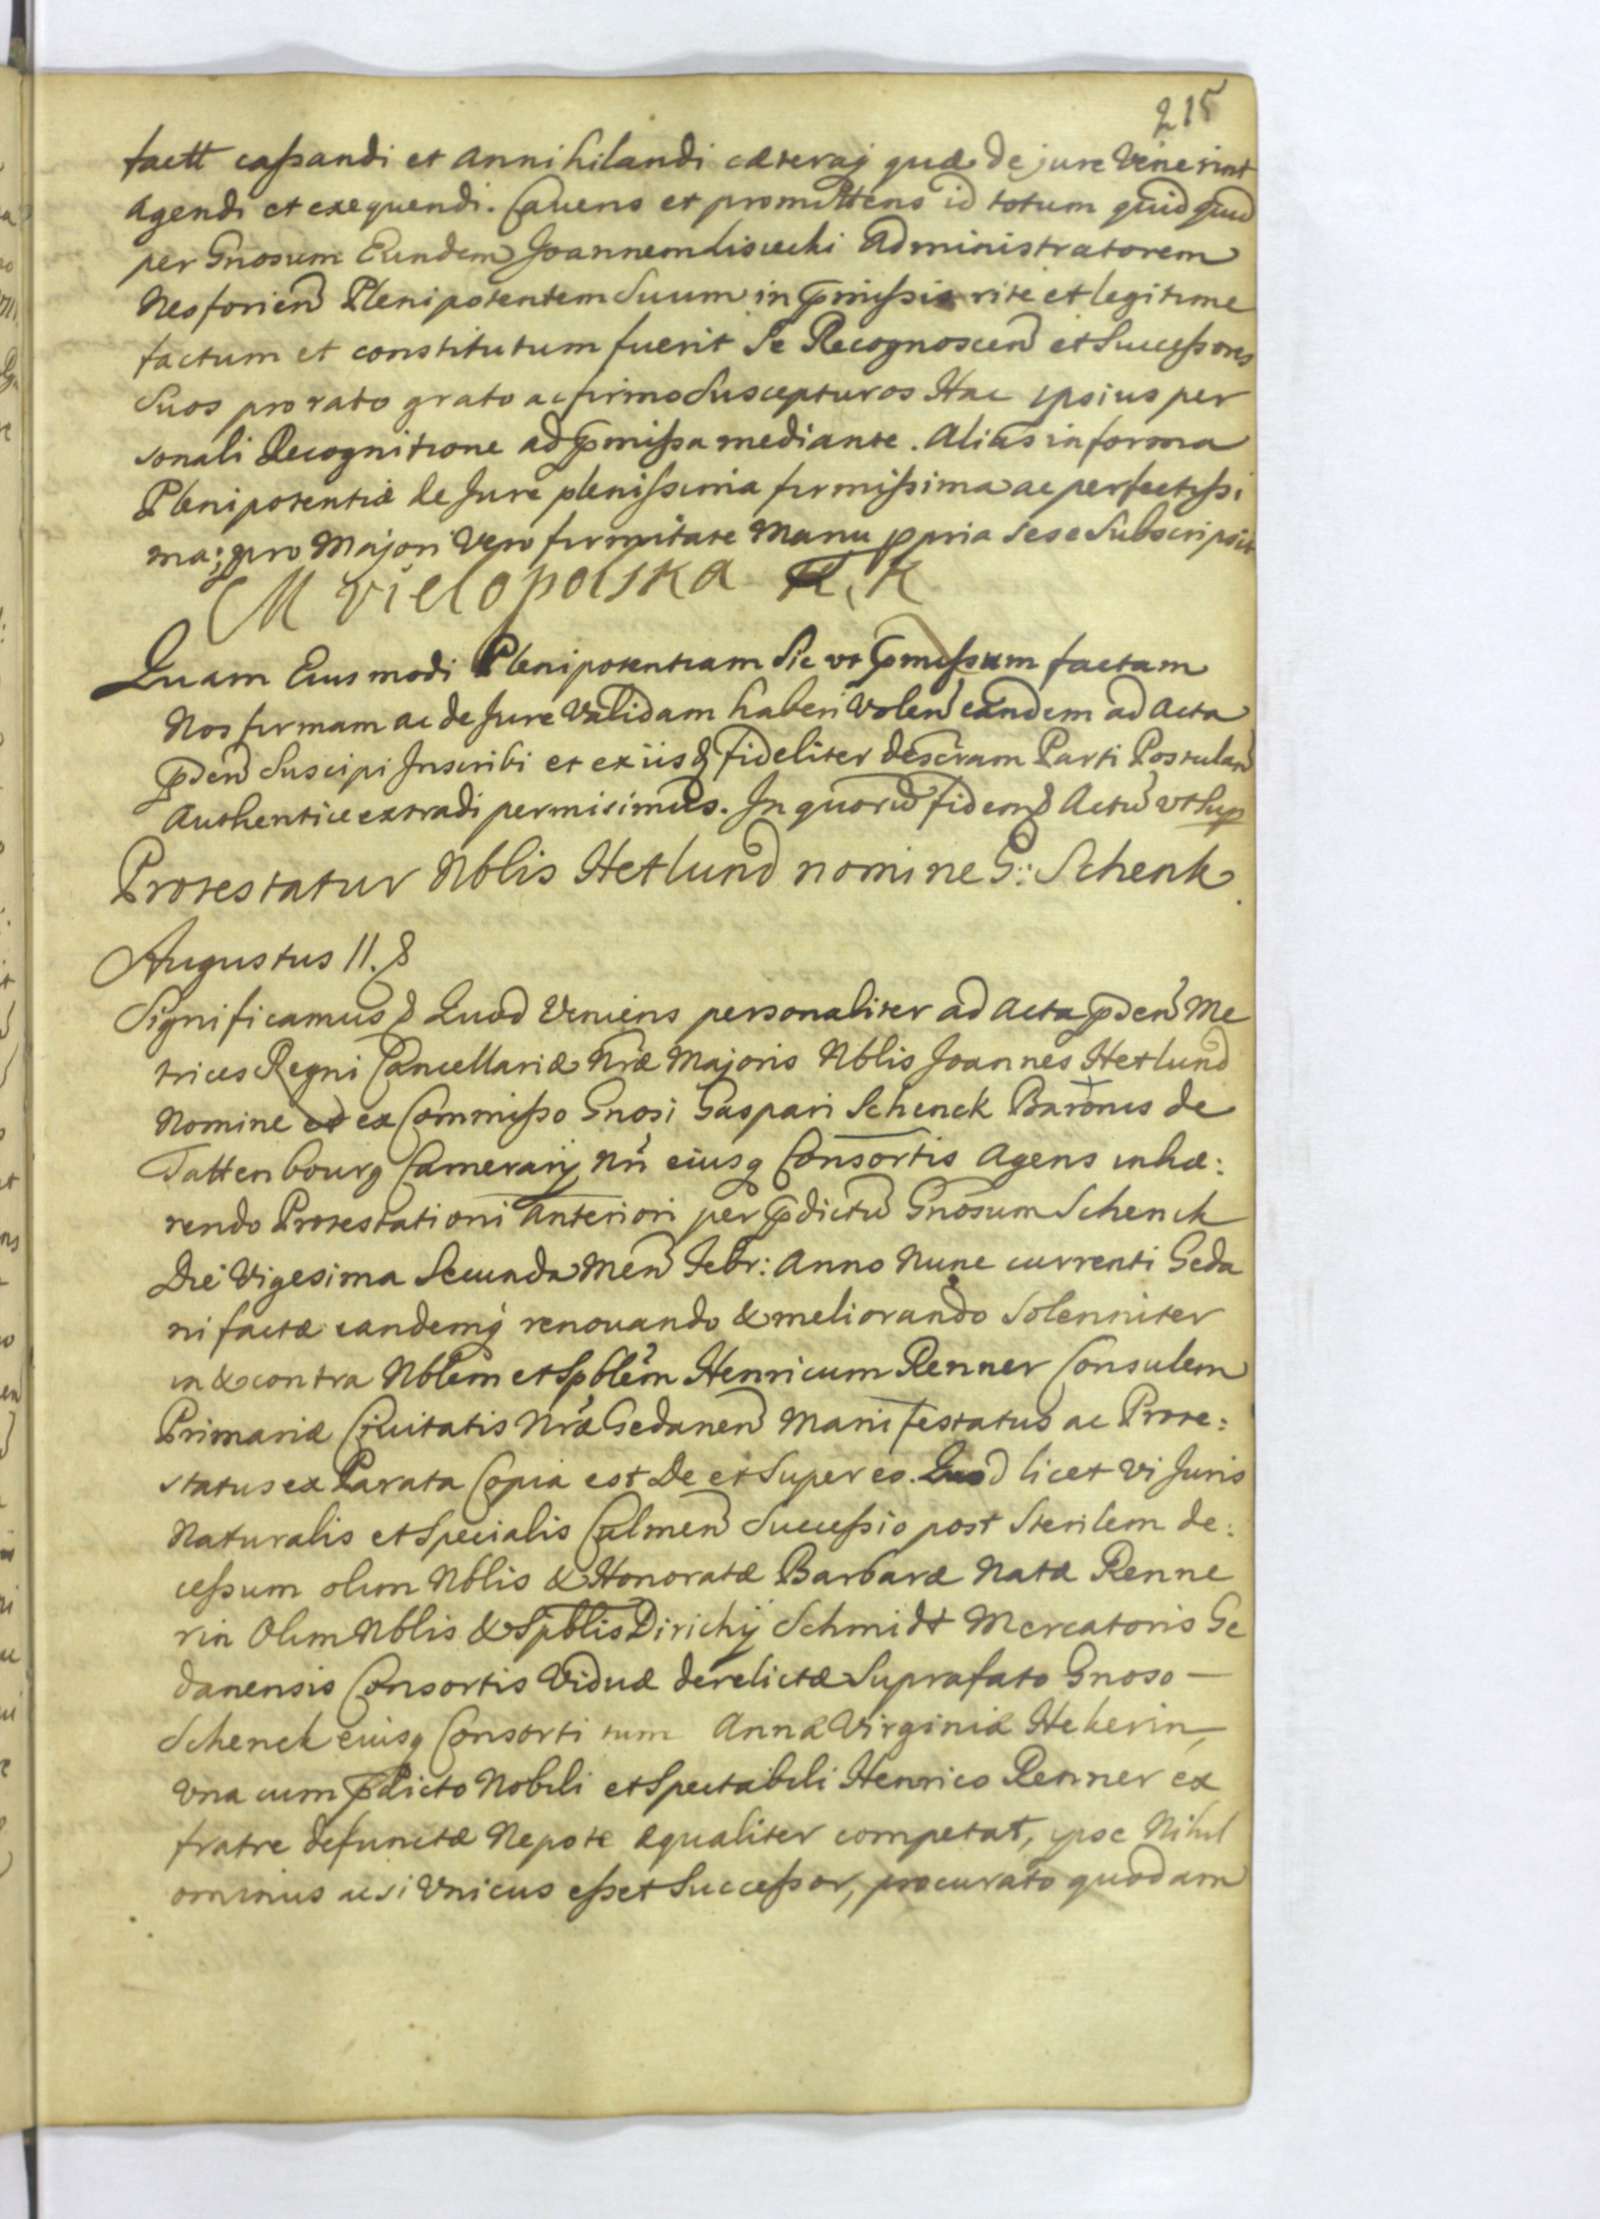 215
factt cassandi et Annihilandi cæteraq quæ de jure Venerint
Agendi et exequendi. Cavens et promittens id totum quidquid
per Gnosum Eundem Joannem Lisiecki Administratorem
Nesforien Plenipotentem Suum in præmissis rite et legitime
factum et constitutum fuerit Se Recognoscen et Successores
Suos pro rato grato ac firmo Suscepturos Hac ipsius per
sonali Recognitione ad præmissa mediante. Alias in forma
Plenipotentiæ de Jure plenissima firmissima ac perfectissi
ma; pro Majori Vero firmitate Manu ppria sese Subscripsit
M Vielopolska K. K
Quam Eiusmodi Plenipotentiam Sic ut præmissum factam
Nos firmam ac de Jure Validam haberi Volen eandem ad Acta
pden Suscipi Inscribi et ex iisq fideliter descram Parti Postulan
Authentice extradi permisimus. In quorũ fidem & Actũ ut Sup
Protestatur Nblis Hetlund nomine G: Schenk.
Augustus II. &
Significamus & Quod Veniens personaliter ad Acta pden Me
trices Regni Cancellariæ Nræ Majoris Nblis Joannes Hetlund
Nomine et ex Commisso Gnosi Gaspari Schenck Baronis de
Tattenbourg Camerarij Nri eiusq Consortis Agens inhæ:
rendo Protestationi Anteriori per pdictũ Gnosum Schenck
Die Vigesima Secunda Men Febr: Anno Nunc currenti Geda
ni factæ eandemq renovando & meliorando Solenniter
in & contra Nblem et Spblem Henricum Renner Consulem
Primariæ Civitatis Nræ Gedanen Manifestatus ac Prote:
status ex Parata Copia est De et Super eo. Quod licet Vi Juris
Naturalis et Specialis Culmen Successio post Sterilem de:
cessum olim Nblis & Honoratæ Barbaræ Natæ Renne
rin Olim Nblis & Spblis Dirichij Schmidt Mercatoris Ge
danensis Consortis Viduæ derelictæ Suprafato Gnoso
Schenck eiusq Consorti tum Annæ Virginiæ Hekerin,
Una cum pdicto Nobili et Spectabili Henrico Renner ex
fratre defunctæ Nepote æqualiter competat, ipse Nihil
ominus acsi Unicus esset Successor, procurato quodam